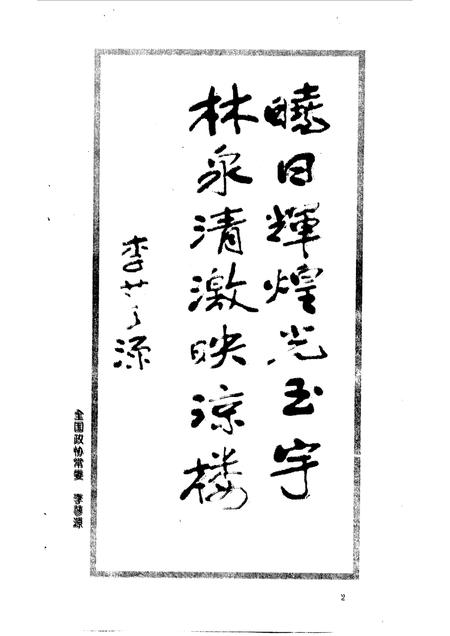 曉日輝煌光玉宇
林泉清激映涼楼
李世源
全国政协常委 李蒙源
2